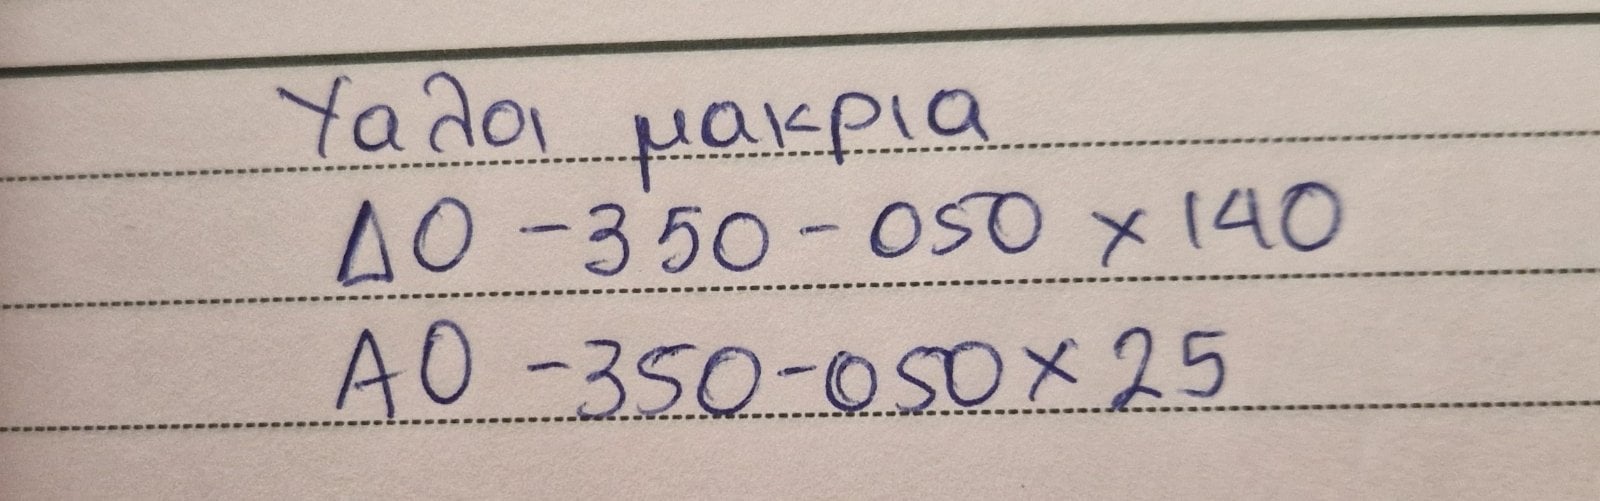 Υαλοι μακρια
ΔΟ -350-050 x 140
ΑΟ -350-050 x 25